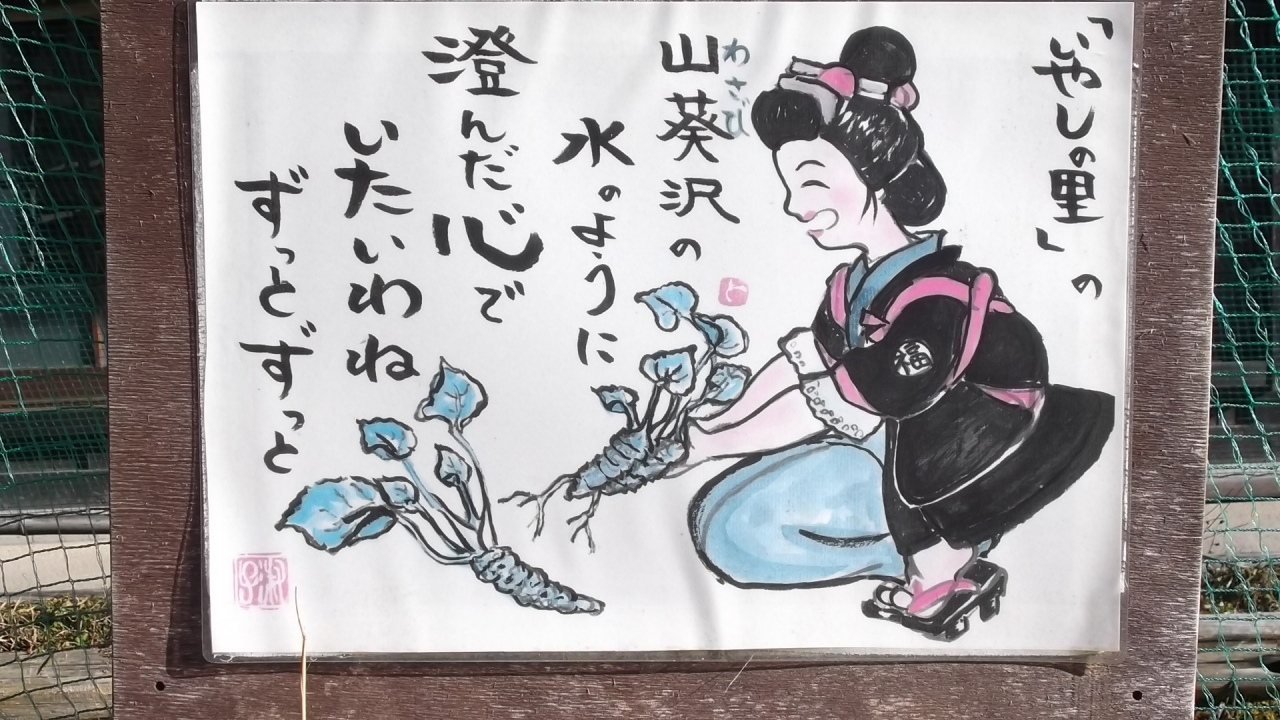 「いやしの里」の
山葵沢の
わさび
水のように
澄んだ心で
いたいわね
ずっとずっと
と
福